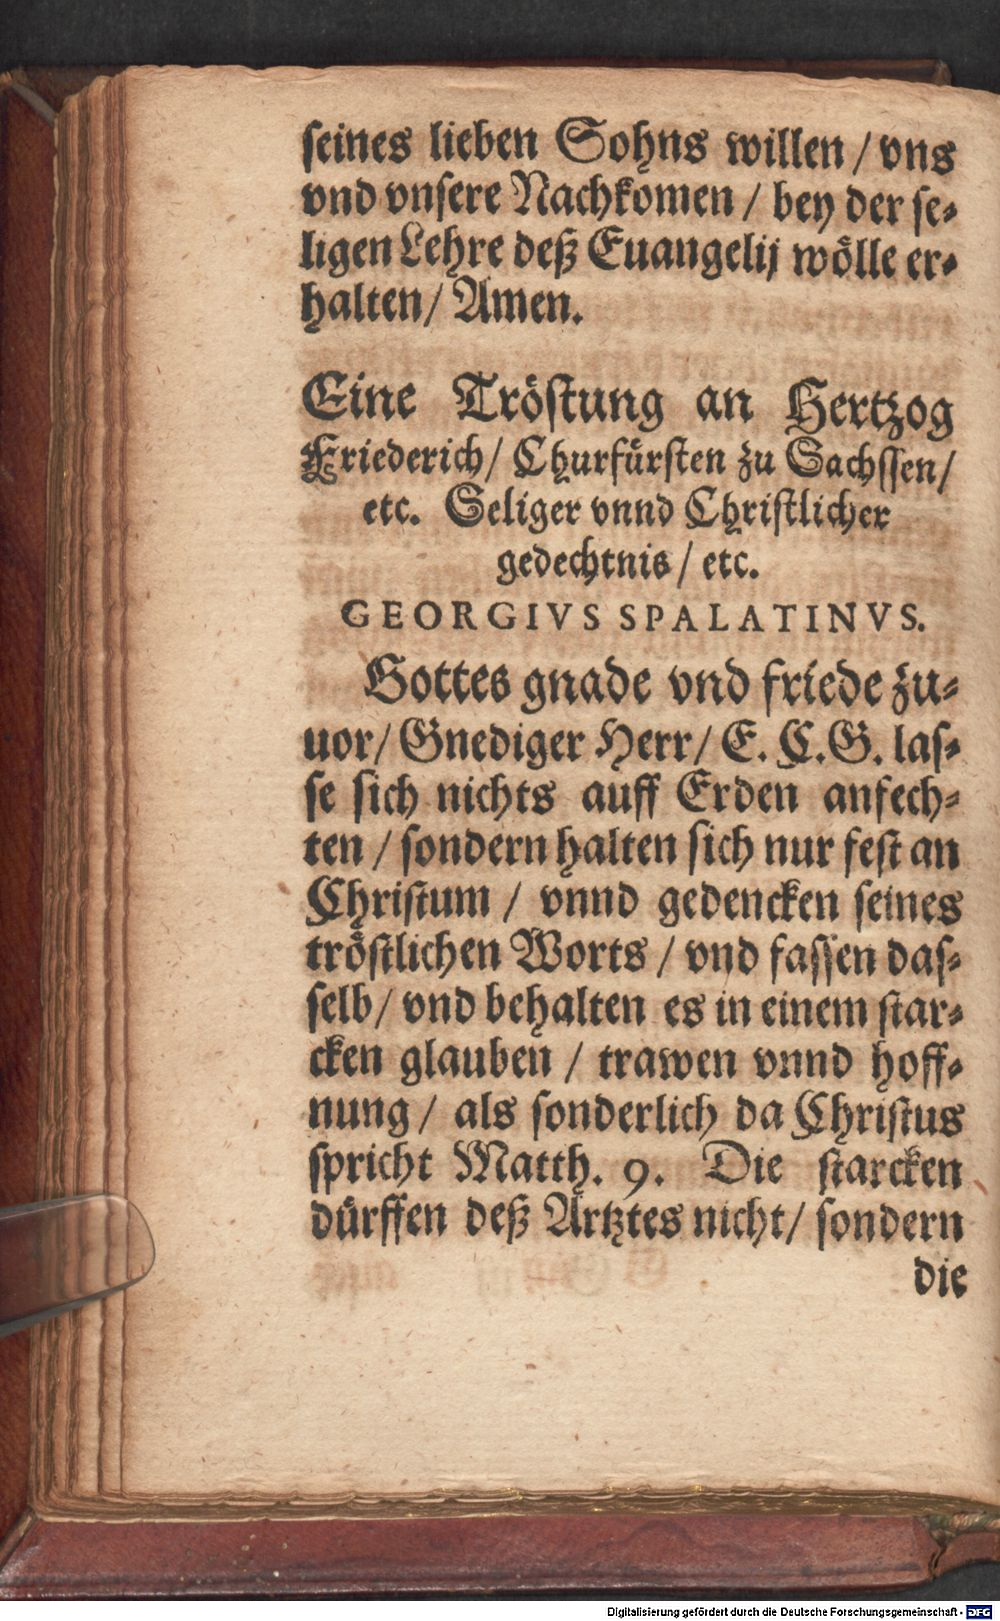 seines lieben Sohns willen / vns
vnd vnsere Nachkomen / bey der se-
ligen Lehre deß Euangelij wölle er-
halten / Amen.
Eine Tröstung an Hertzog
Friederich / Churfürsten zu Sachssen /
etc. Seliger vnnd Christlicher
gedechtnis / etc.
GEORGIVS SPALATINVS.
Gottes gnade vnd friede zu-
uor / Gnediger Herr / E. C. G. las-
se sich nichts auff Erden anfech-
ten / sondern halten sich nur fest an
Christum / vnnd gedencken seines
tröstlichen Worts / vnd fassen das-
selb / vnd behalten es in einem star-
cken glauben / trawen vnnd hoff-
nung / als sonderlich da Christus
spricht Matth. 9. Die starcken
dürffen deß Artztes nicht / sondern
die
Digitalisierung gefördert durch die Deutsche Forschungsgemeinschaft - DFG